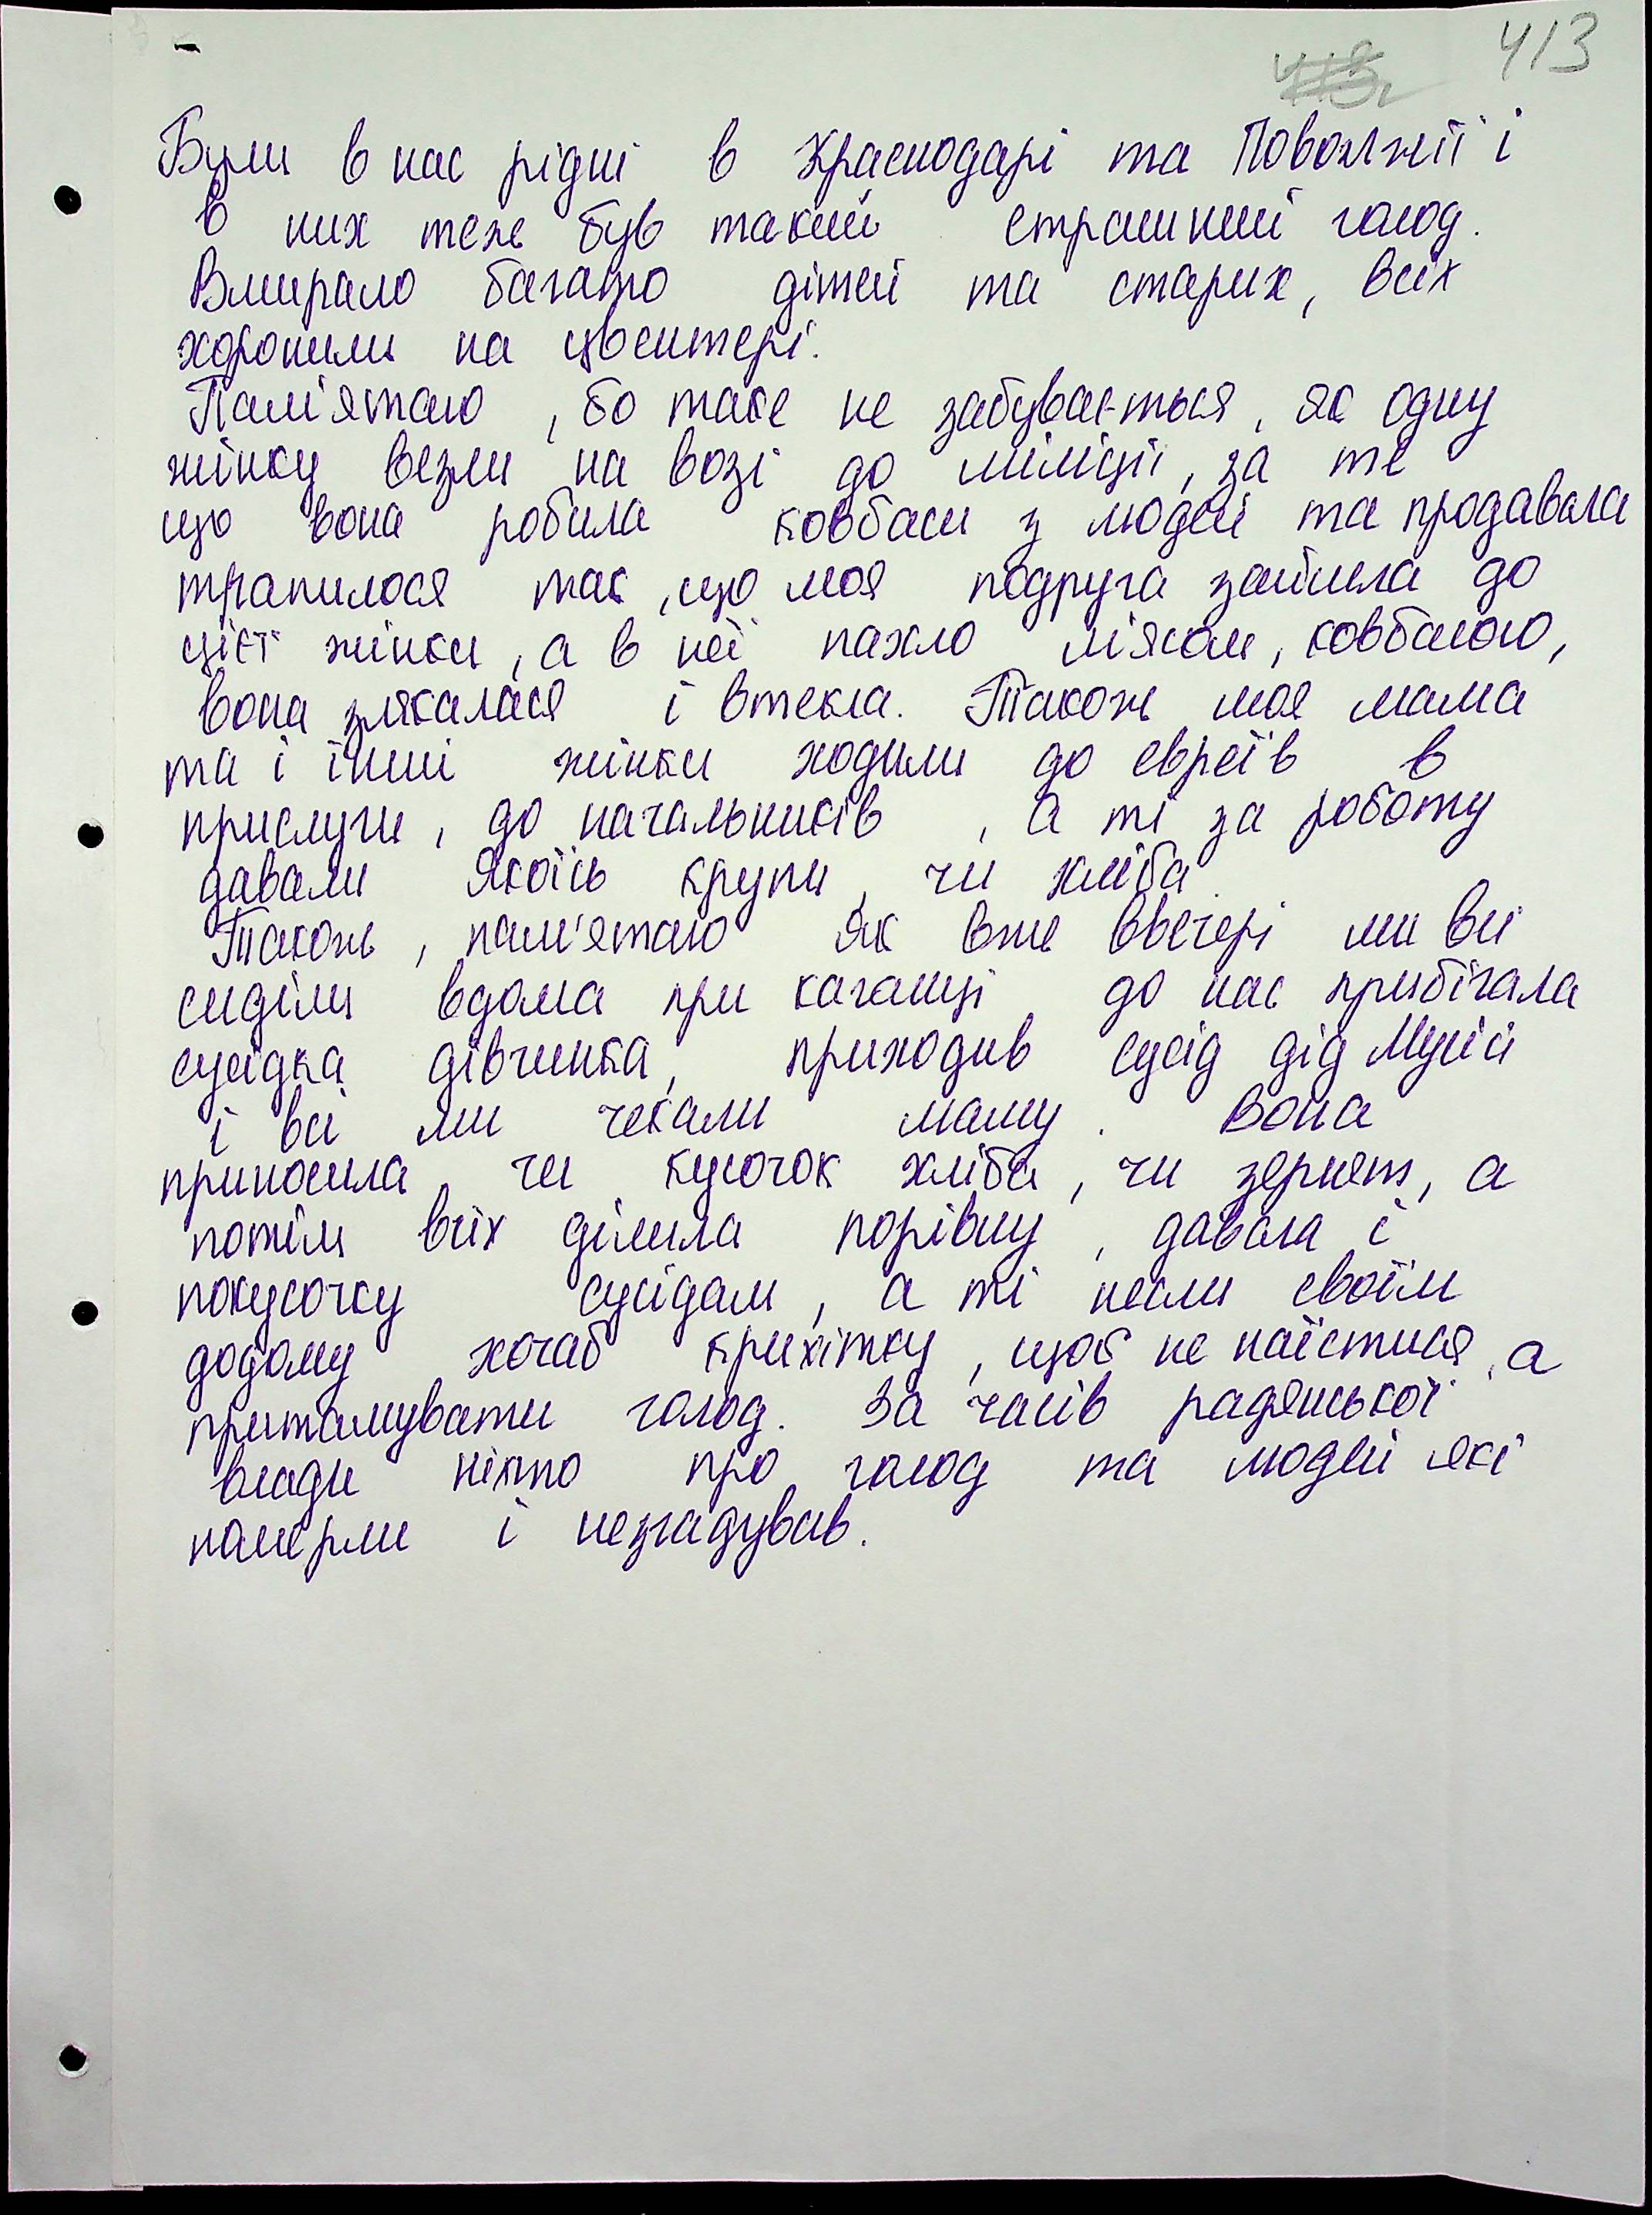 413
Були в нас рідні в Краснодарі та Поволжії і
в них теж був такий страшний голод.
Вмирало багато дітей та старих, всіх
хоронили на цвентері.
Пам'ятаю, бо таке не забувається, як одну
жінку везли на возі до міліції, за те
що вона робила ковбаси з людей та продавала
трапилося так, що моя подруга зайшла до
цієї жінки, а в неї пахло м'ясом, ковбасою,
вона злякалася і втекла. Також моя мама
та і інші жінки ходили до евреїв в
прислуги, до начальників, а ті за роботу
давали якоїсь крупи, чи хліба.
Також, пам'ятаю як вже ввечері ми всі
сиділи вдома при каганці до нас прибігала
сусідка дівчинка, приходив сусід дід Мусій
і всі ми чекали маму. Вона
приносила чи кусочок хліба, чи зернят, а
потім всіх ділила порівну, давала і
покусочку сусідам, а ті несли своїм
додому хочаб крихітку, щоб не наїстися, а
притамувати голод. За часів радянської
влади ніхто про голод та людей які
померли і незгадував.